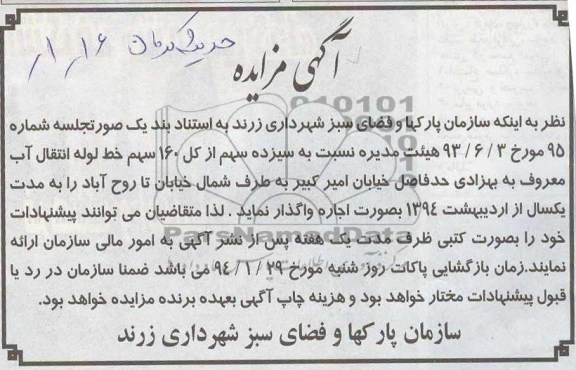 حدیث کرمان ۱۶ ر ۱ ر
آگهی مزایده
نظر به اینکه سازمان پارکها و فضای سبز شهرداری زرند به استناد بند یک صورتجلسه شماره
۹۵ مورخ ۳ / ۶ / ۹۳ هیئت مدیره نسبت به سیزده سهم از کل ۱۶۰ سهم خط لوله انتقال آب
معروف به بهزادی حدفاصل خیابان امیر کبیر به طرف شمال خیابان تا روح آباد را به مدت
یکسال از اردیبهشت ۱۳۹۴ بصورت اجاره واگذار نماید . لذا متقاضیان می توانند پیشنهادات
خود را بصورت کتبی ظرف مدت یک هفته پس از نشر آگهی به امور مالی سازمان ارائه
نمایند.زمان بازگشایی پاکات روز شنبه مورخ ۲۹ / ۱ / ۹۴ می باشد ضمنا سازمان در رد یا
قبول پیشنهادات مختار خواهد بود و هزینه چاپ آگهی بعهده برنده مزایده خواهد بود.
سازمان پارکها و فضای سبز شهرداری زرند
ParsNamadData